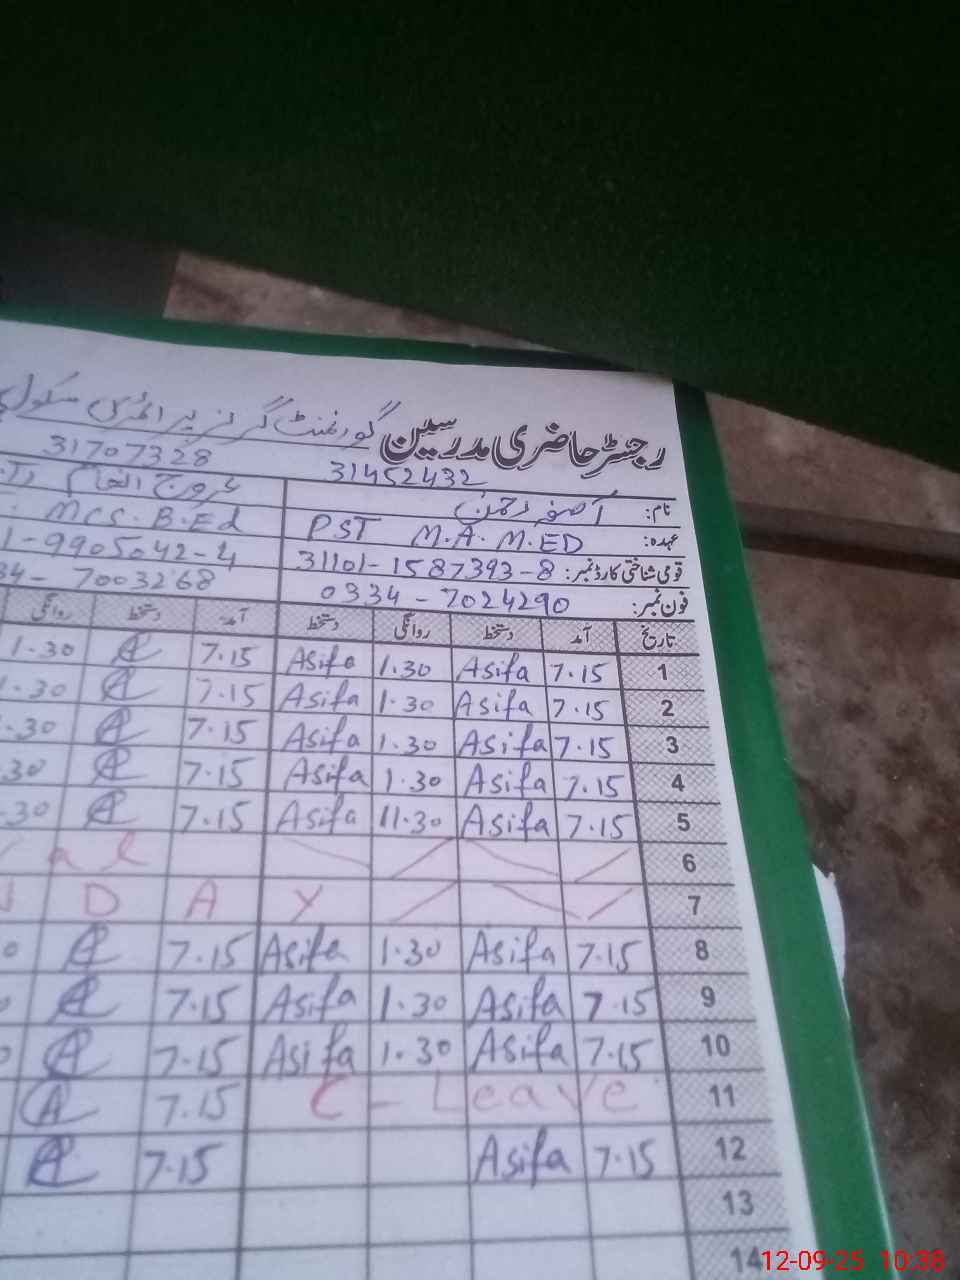 رجسٹر حاضری مدرسین گورنمنٹ گرلز پرائمری سکول
31452432 31707328
نام: آصفہ رحمٰن عروج انعام
عہدہ: PST M.A. M.ED MCS. B.Ed
قومی شناختی کارڈ نمبر: 31101-1587393-8 1-9905042-4
فون نمبر: 0334-7024290 34-7003268
تاریخ آمد دستخط روانگی دستخط آمد دستخط روانگی
1 7.15 Asifa 1.30 Asifa 7.15 1.30
2 7.15 Asifa 1.30 Asifa 7.15 1.30
3 7.15 Asifa 1.30 Asifa 7.15 .30
4 7.15 Asifa 1.30 Asifa 7.15 .30
5 7.15 Asifa 11.30 Asifa 7.15 .30
6 al
7 D A Y
8 7.15 Asifa 1.30 Asifa 7.15 0
9 7.15 Asifa 1.30 Asifa 7.15 0
10 7.15 Asifa 1.30 Asifa 7.15 0
11 C-Leave 7.15
12 7.15 Asifa 7.15
13
14
12-09-25 10:38